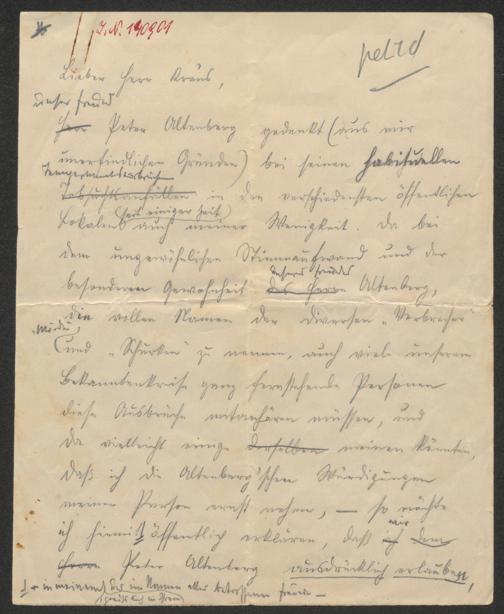 J.N. 140901
petzd
Lieber Herr Kraus,
unser Freund
Herr Peter Altenberg gedenkt (aus mir
unerfindlichen Gründen) bei seinen habituellen
Temperamentsausbrüchen
Tobsuchtsanfällen in den verschiedensten öffentlichen
Lokalen (seit einiger Zeit) auch meiner Wenigkeit. Da bei
dem ungewöhnlichen Stimmaufwand und der
besonderen Gewohnheit unseres Freundes des Herrn Altenberg,
die vollen Namen der diversen „Verbrecher“
„Mörder“
(und „Schurken“ zu nennen, auch viele unserem
Bekanntenkreise ganz fernstehende Personen
diese Ausbrüche mitanhören müssen, und
da vielleicht einige derselben meinen könnten,
daß ich die Altenberg'schen Würdigungen
meiner Person ernst nehme, — so möchte
ich hiemit öffentlich erklären, daß ich wir dem
Herrn Peter Altenberg ausdrücklich erlauben,
+ in meinem und im Namen aller Freunde —